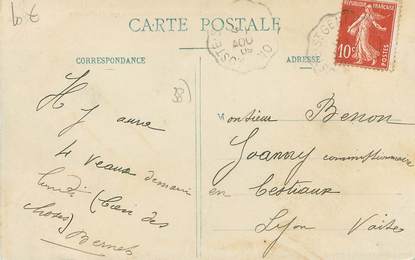 CARTE POSTALE
CORRESPONDANCE
ADRESSE
RÉPUBLIQUE FRANÇAISE
10c
POSTES
Il y aura
4 Veaux demain
lundi (bien des
choses)
Bernet
Monsieur Benon
Joanny commissionnaire
en Bestiaux
Lyon Vaise